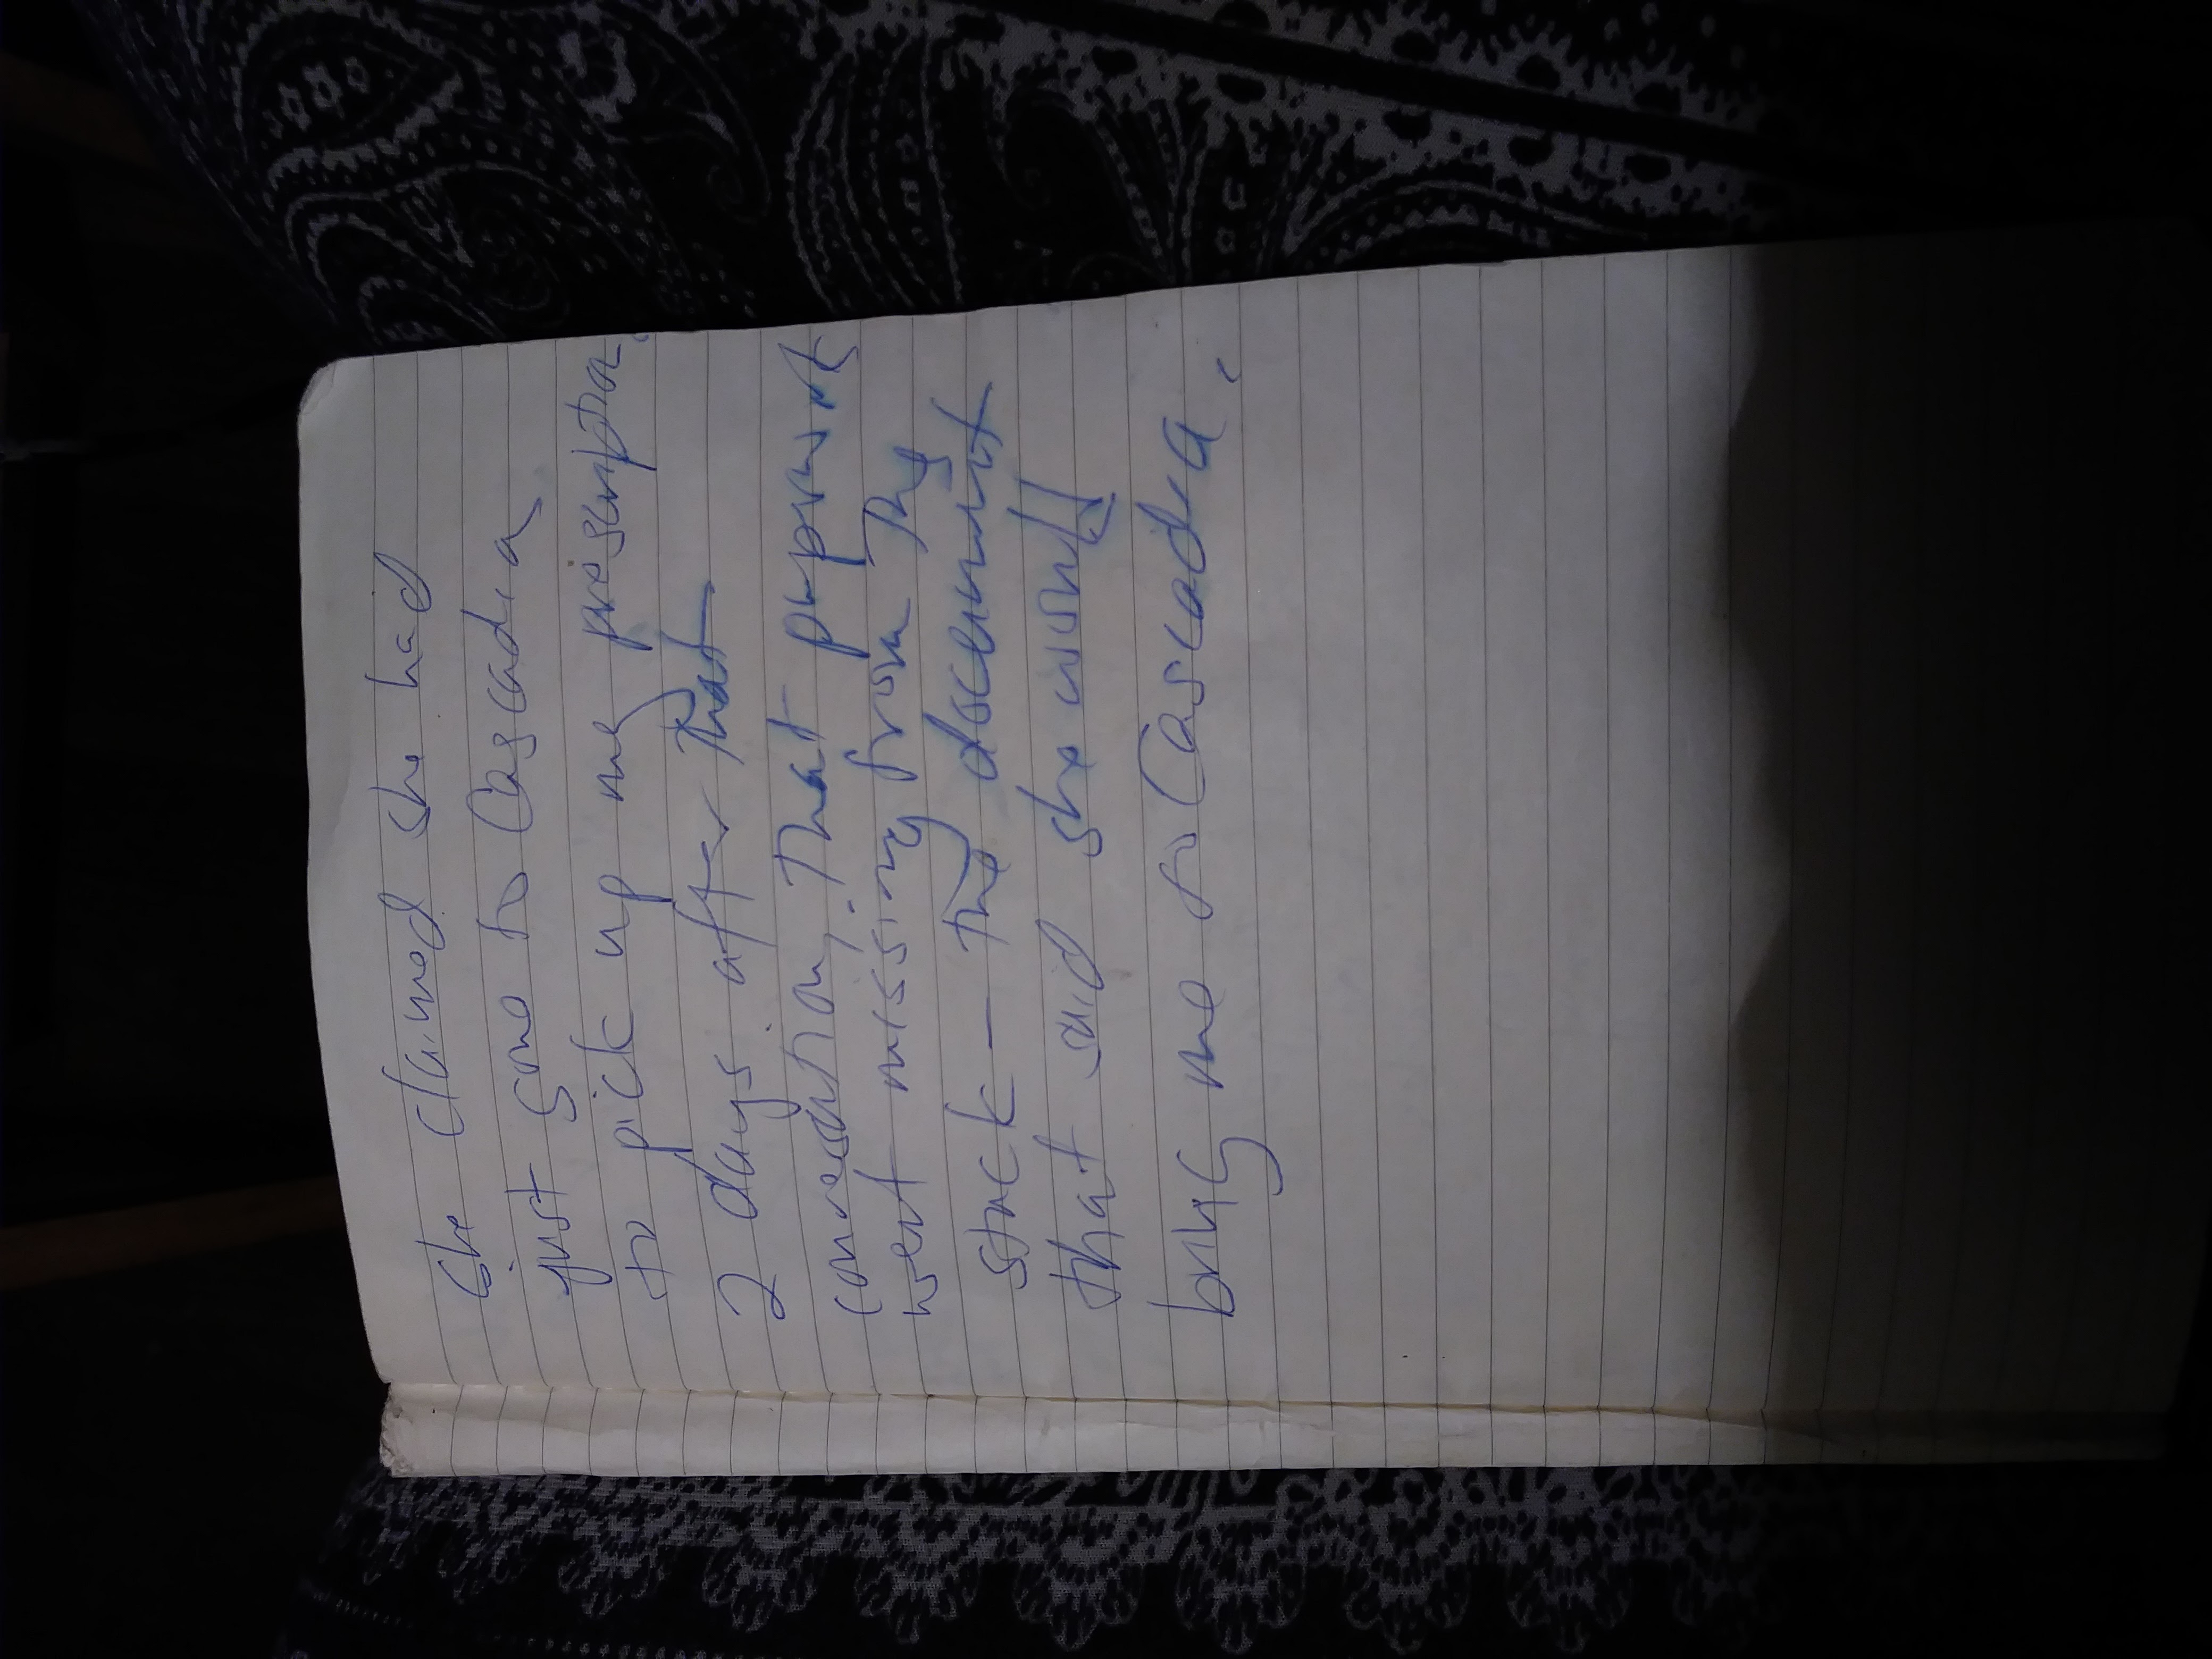 She claimed she had
just gone to Cascadia
to pick up my prescription.
2 days after that
conversation, that paperwork
went missing from the
stack - the document
that said she would
bring me to Cascadia.